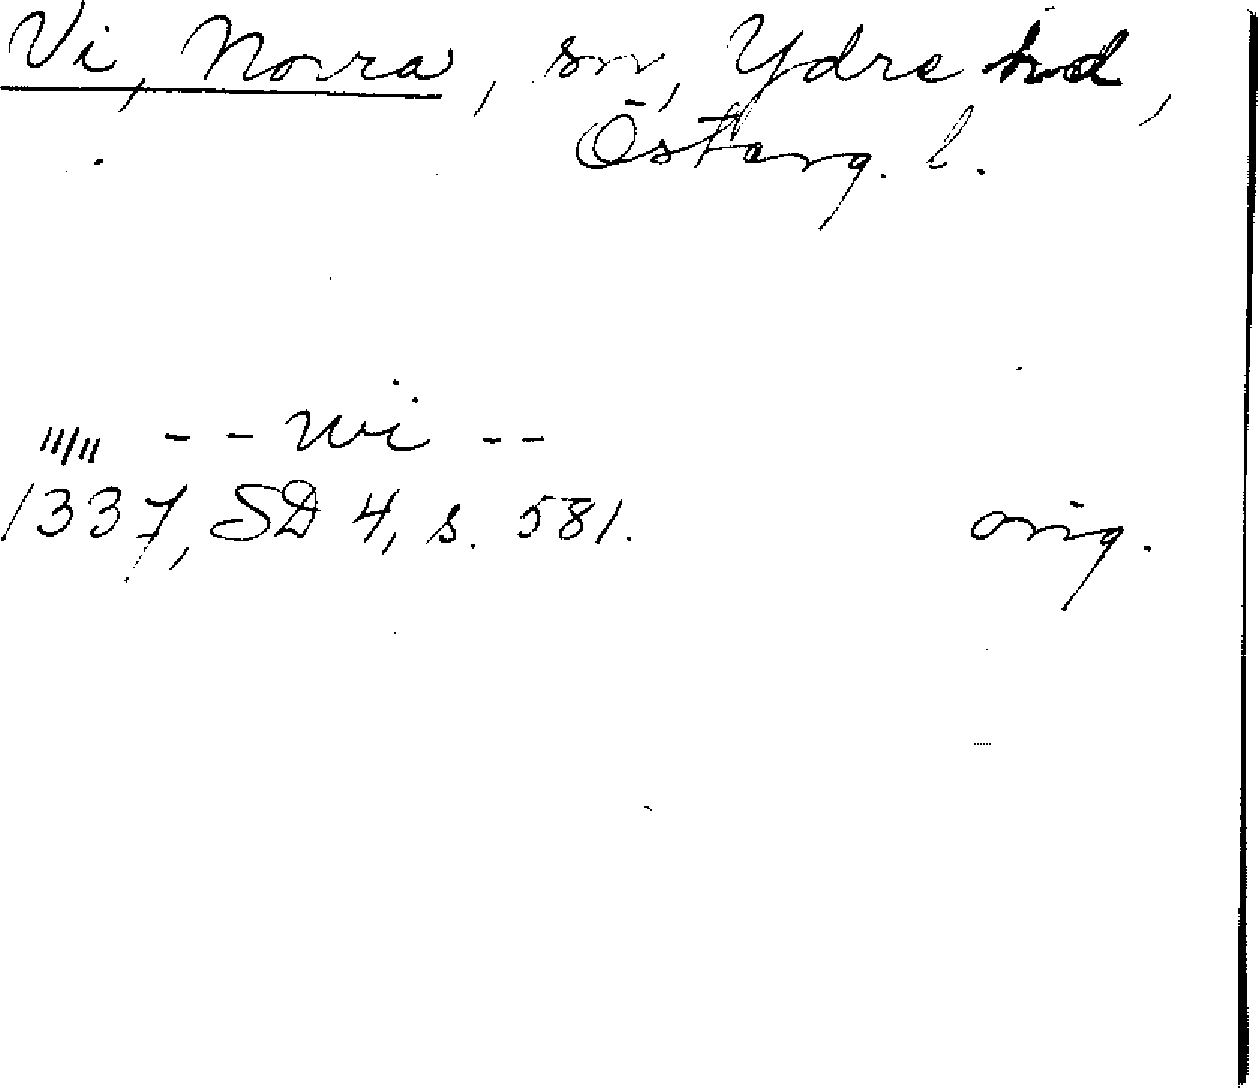 Vi, Norra, sn, Ydre hd,
Österg. l.
11/11 - - wi - -
1337, SD 4, s. 581. orig.